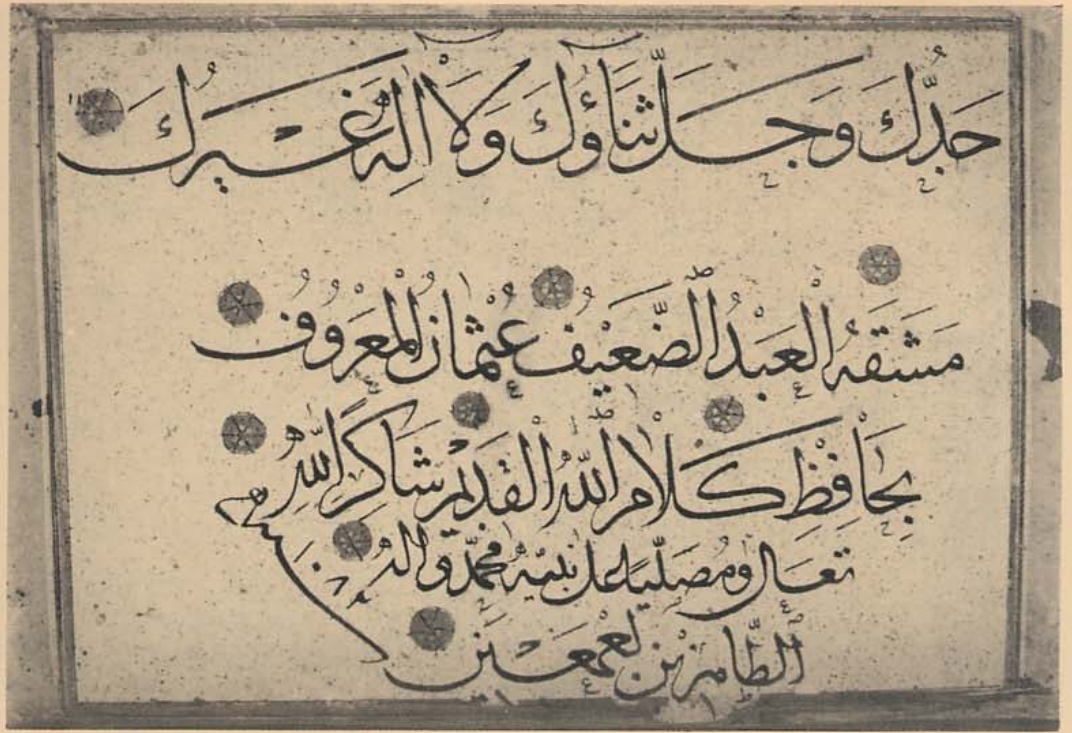 جَدُّكَ وَجَلَّ ثَنَاؤُكَ وَلَا إِلٰهَ غَيْرُكَ
مَشَقَهُ الْعَبْدُ الضَّعِيْفُ عُثْمَانُ الْمَعْرُوفُ
بِحَافِظِ كَلَامِ اللّٰهِ الْقَدِيْمِ شَاكِرًا لِلّٰهِ
تعالى ومصليا على نبيه محمد وآله
الطاهرين أجمعين